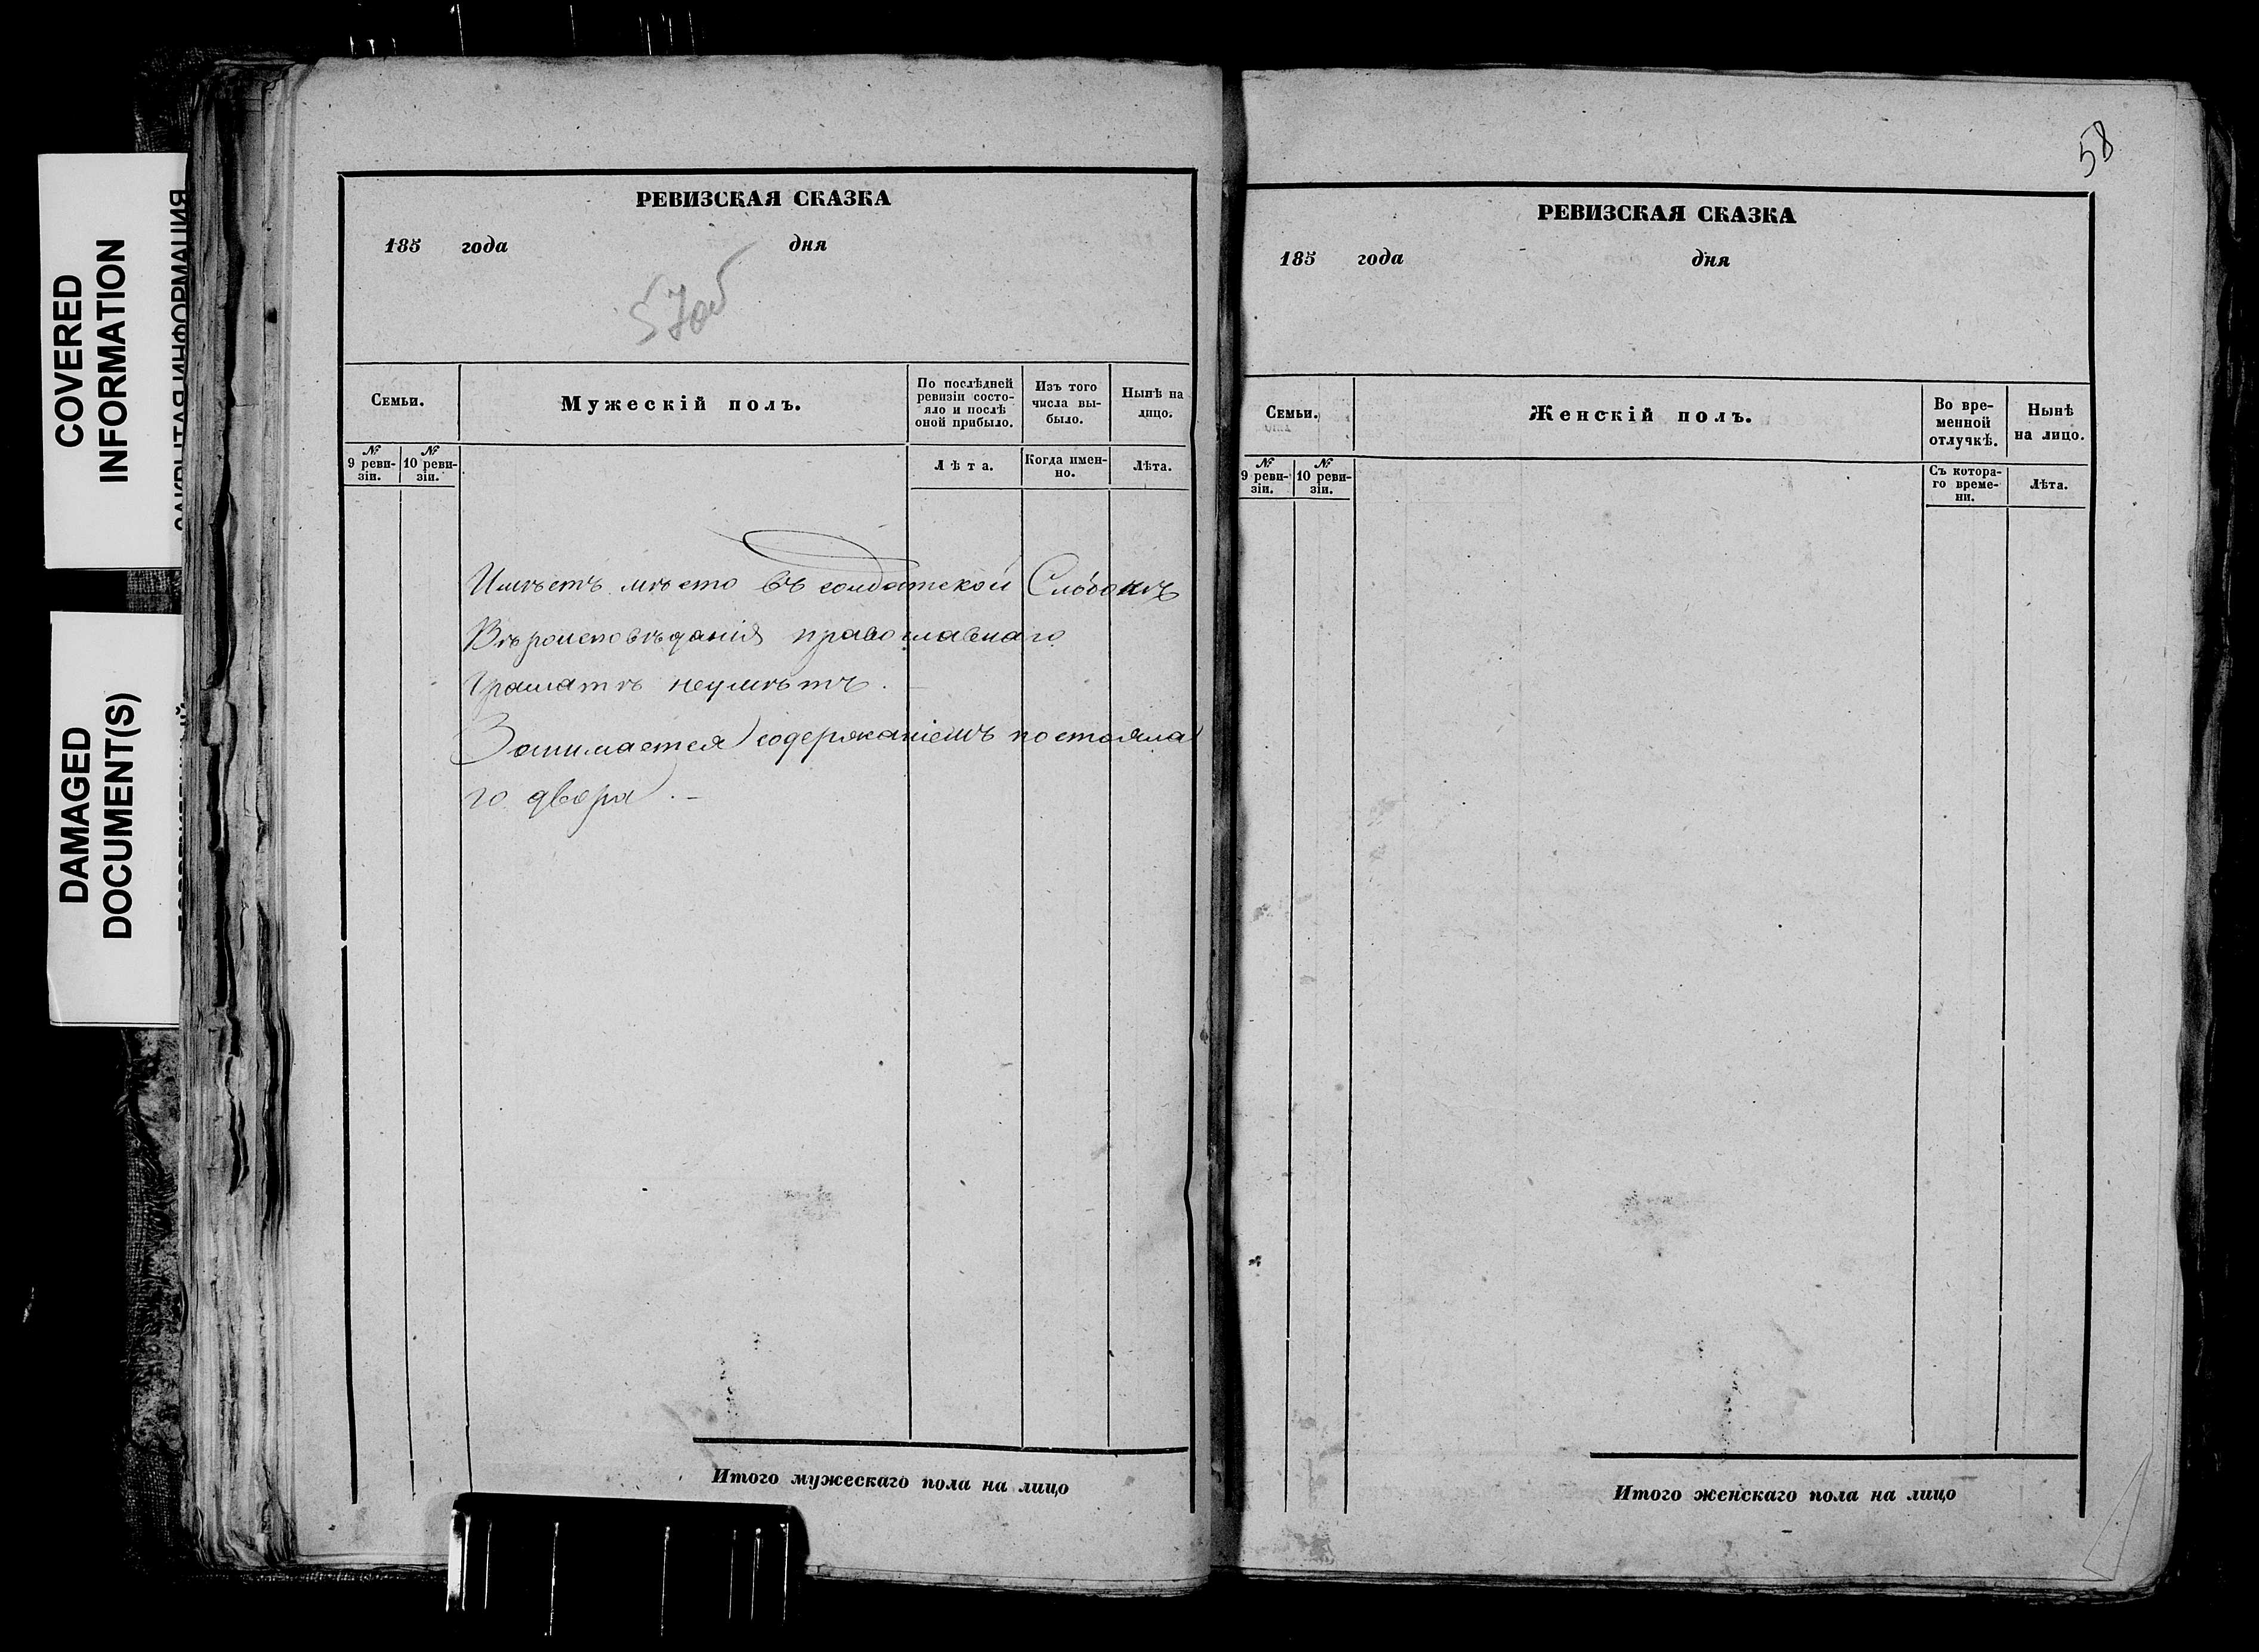 COVERED
INFORMATION
DAMAGED
DOCUMENT(S)
РЕВИЗСКАЯ СКАЗКА
185 года дня
57об
Семьи.
Мужескій полъ.
По послѣдней
ревизіи состо-
яло и послѣ
оной прибыло.
Изъ того
числа вы-
было.
Нынѣ на
лицо.
№
9 реви-
зіи.
№
10 реви-
зіи.
Лѣта.
Когда имен-
но.
Лѣта.
Имѣетъ мѣсто въ солдатской Слободкѣ
Вѣроисповѣданія православнаго
Граматѣ неумѣтъ.
Занимается содержаніемъ постояла
го двора. —
Итого мужескаго пола на лицо
58
РЕВИЗСКАЯ СКАЗКА
185 года дня
Семьи.
Женскій полъ.
Во вре-
менной
отлучкѣ.
Нынѣ
на лицо.
№
9 реви-
зіи.
№
10 реви-
зіи.
Съ котора-
го време-
ни.
Лѣта.
Итого женскаго пола на лицо